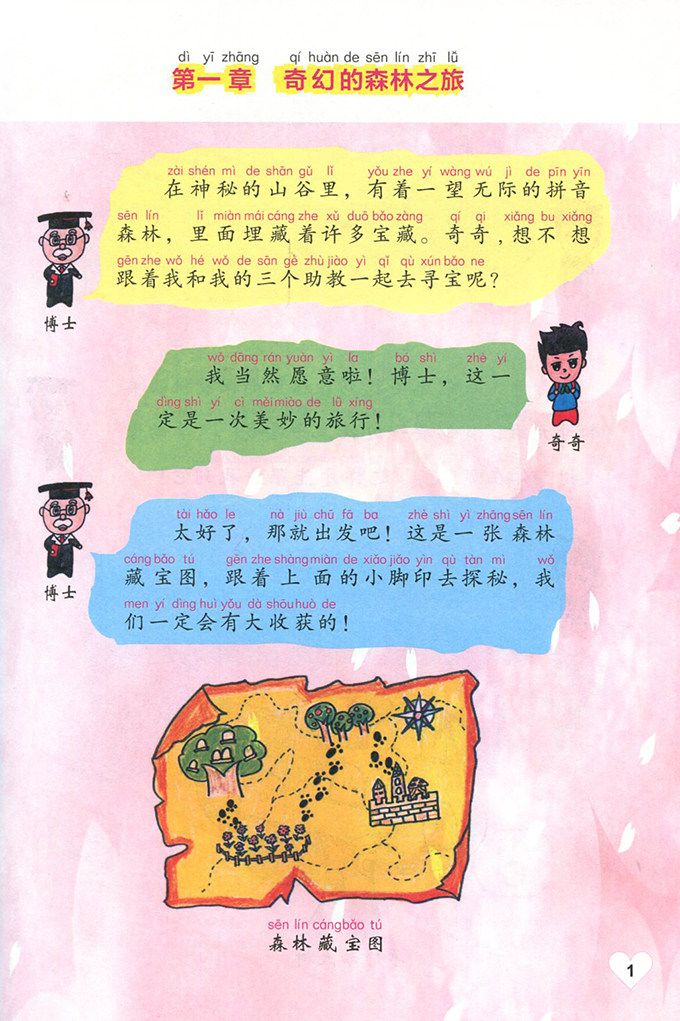 dì yī zhāng qí huàn de sēn lín zhī lǚ
第一章 奇幻的森林之旅
zài shén mì de shān gǔ lǐ yǒu zhe yí wàng wú jì de pīn yīn
在神秘的山谷里，有着一望无际的拼音
sēn lín lǐ miàn mái cáng zhe xǔ duō bǎo zàng qí qi xiǎng bu xiǎng
森林，里面埋藏着许多宝藏。奇奇，想不想
gēn zhe wǒ hé wǒ de sān gè zhù jiào yì qǐ qù xún bǎo ne
跟着我和我的三个助教一起去寻宝呢？
博士
wǒ dāng rán yuàn yì la bó shì zhè yí
我当然愿意啦！博士，这一
dìng shì yí cì měi miào de lǚ xíng
定是一次美妙的旅行！
奇奇
tài hǎo le nà jiù chū fā ba zhè shì yì zhāng sēn lín
太好了，那就出发吧！这是一张森林
cáng bǎo tú gēn zhe shàng miàn de xiǎo jiǎo yìn qù tàn mì wǒ
藏宝图，跟着上面的小脚印去探秘，我
men yí dìng huì yǒu dà shōu huò de
们一定会有大收获的！
博士
sēn lín cáng bǎo tú
森林藏宝图
1